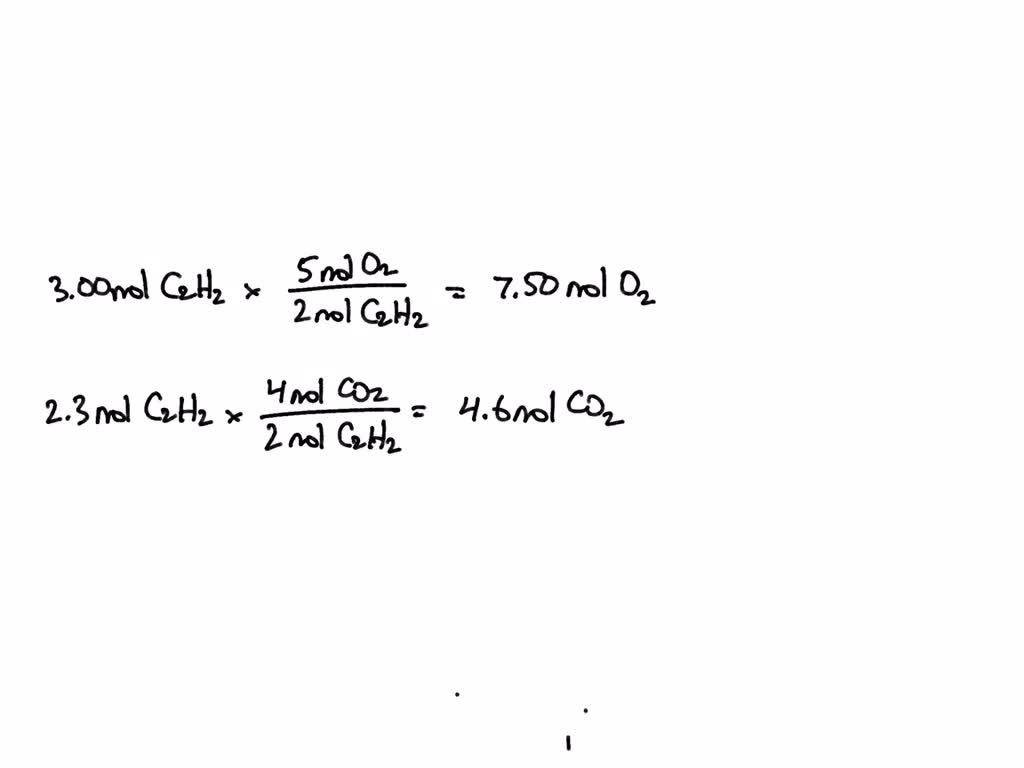 3.00mol C2H2 × 5 mol O2 / 2 mol C2H2 = 7.50 mol O2
2.3 mol C2H2 × 4 mol CO2 / 2 mol C2H2 = 4.6 mol CO2